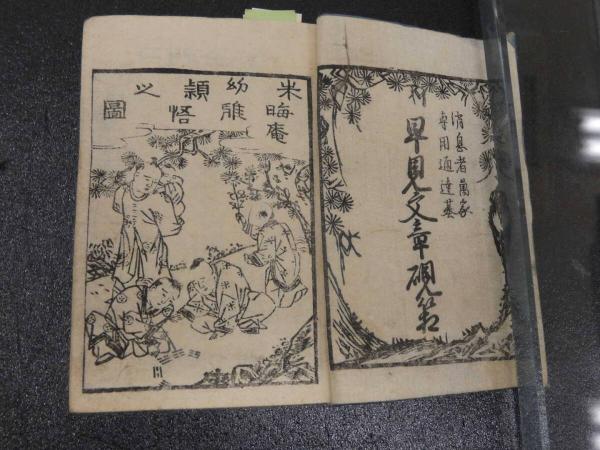 消息者萬家
専用通達基
早見文章硯
朱晦庵
幼稚
頴悟
之
圖